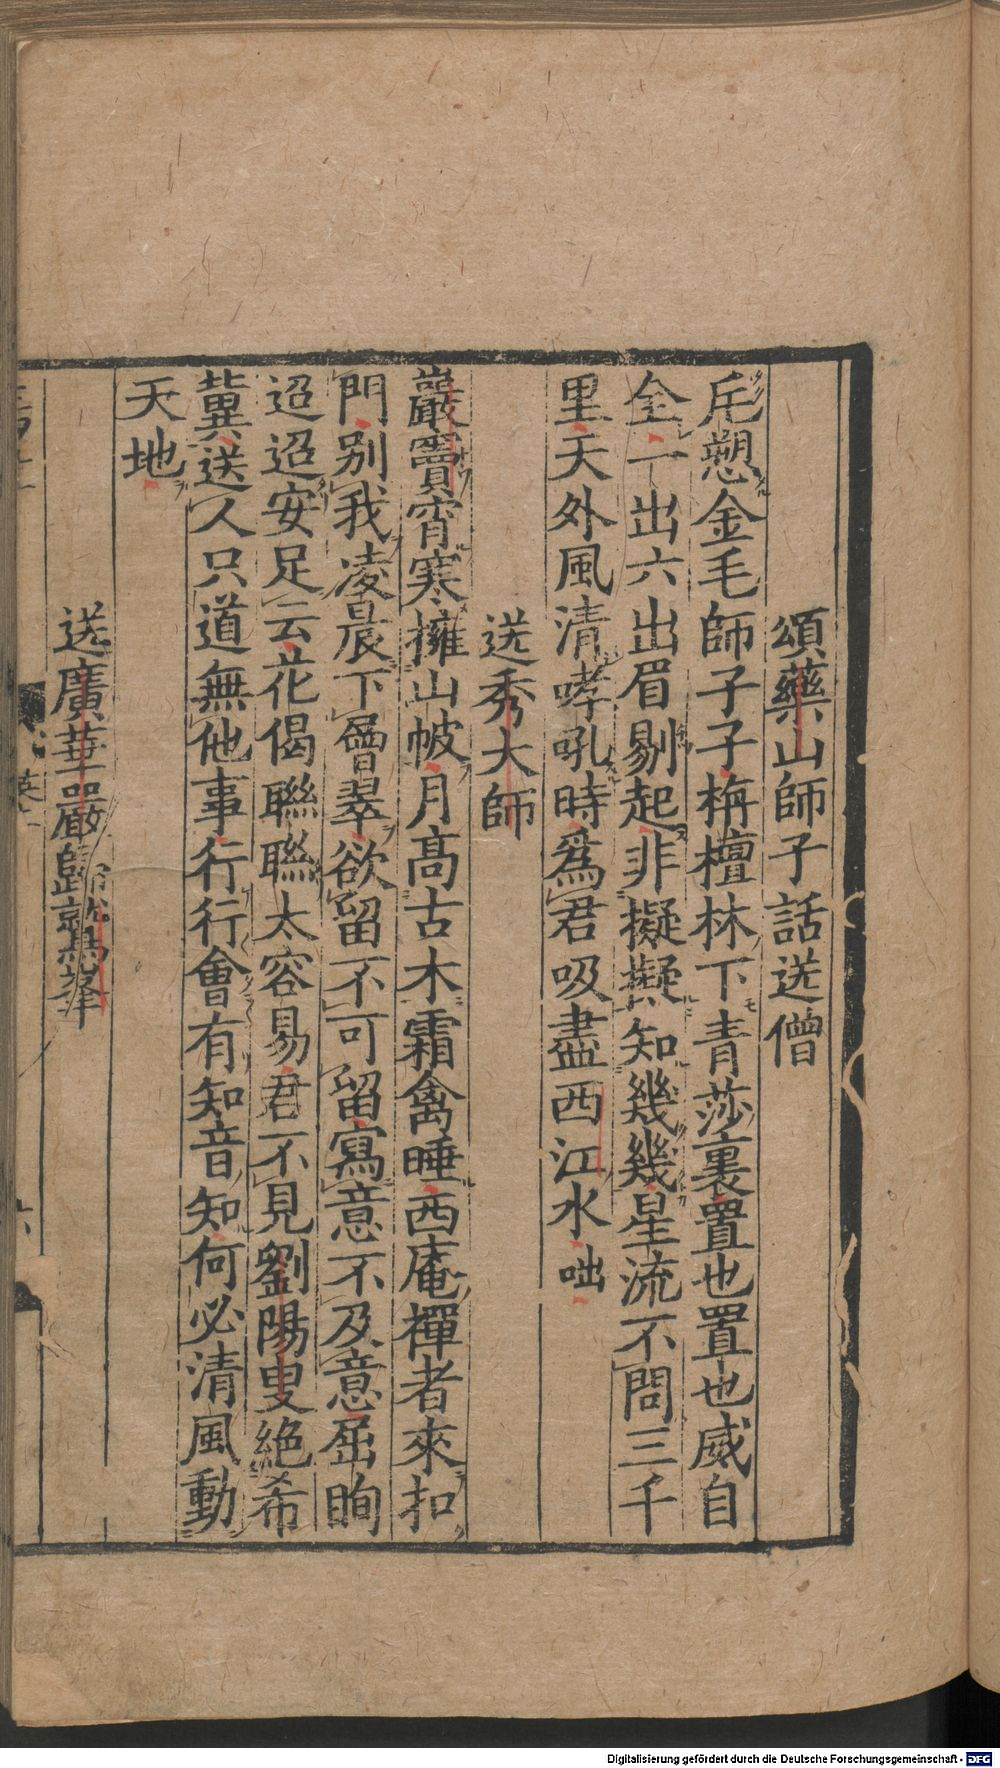 頌藥山師子話送僧
斥愬金毛師子子栴檀林下青莎裏置也置也威自
全一出六出眉剔起非擬擬知幾幾星流不問三千
里天外風清哮吼時爲君吸盡西江水咄
送秀大師
巖竇宵寒擁山帔月高古木霜禽睡西庵禪者來扣
門別我凌晨下層翠欲留不可留寫意不及意屈眴
迢迢安足云花偈聯聯太容易君不見劉陽叟絶希
冀送人只道無他事行行會有知音知何必清風動
天地
送廣華嚴歸就馬峯
Digitalisierung gefördert durch die Deutsche Forschungsgemeinschaft - DFG